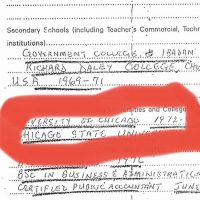 Secondary Schools (including Teacher's Commercial, Techn
institutions).
GOVERNMENT COLLEGE, IBADAN
RICHARD DALEY COLLEGE, CH
USA 1969-71
ities and College
VERSITY OF CHICAGO 1972-
HICAGO STATE UNIV
1976
BSC IN BUSINESS & ADMINISTRATIO
CERTIFIED PUBLIC ACCOUNTANT JUNE